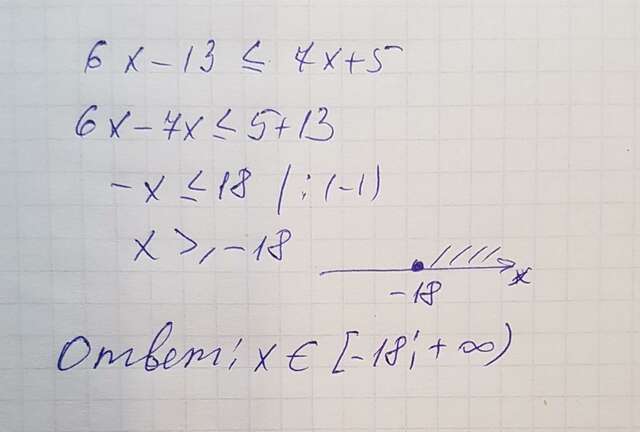 6x-13 ≤ 7x+5
6x-7x ≤ 5+13
-x ≤ 18 /:(-1)
x ≥ -18
-18 x
Ответ: x ∈ [-18; +∞)